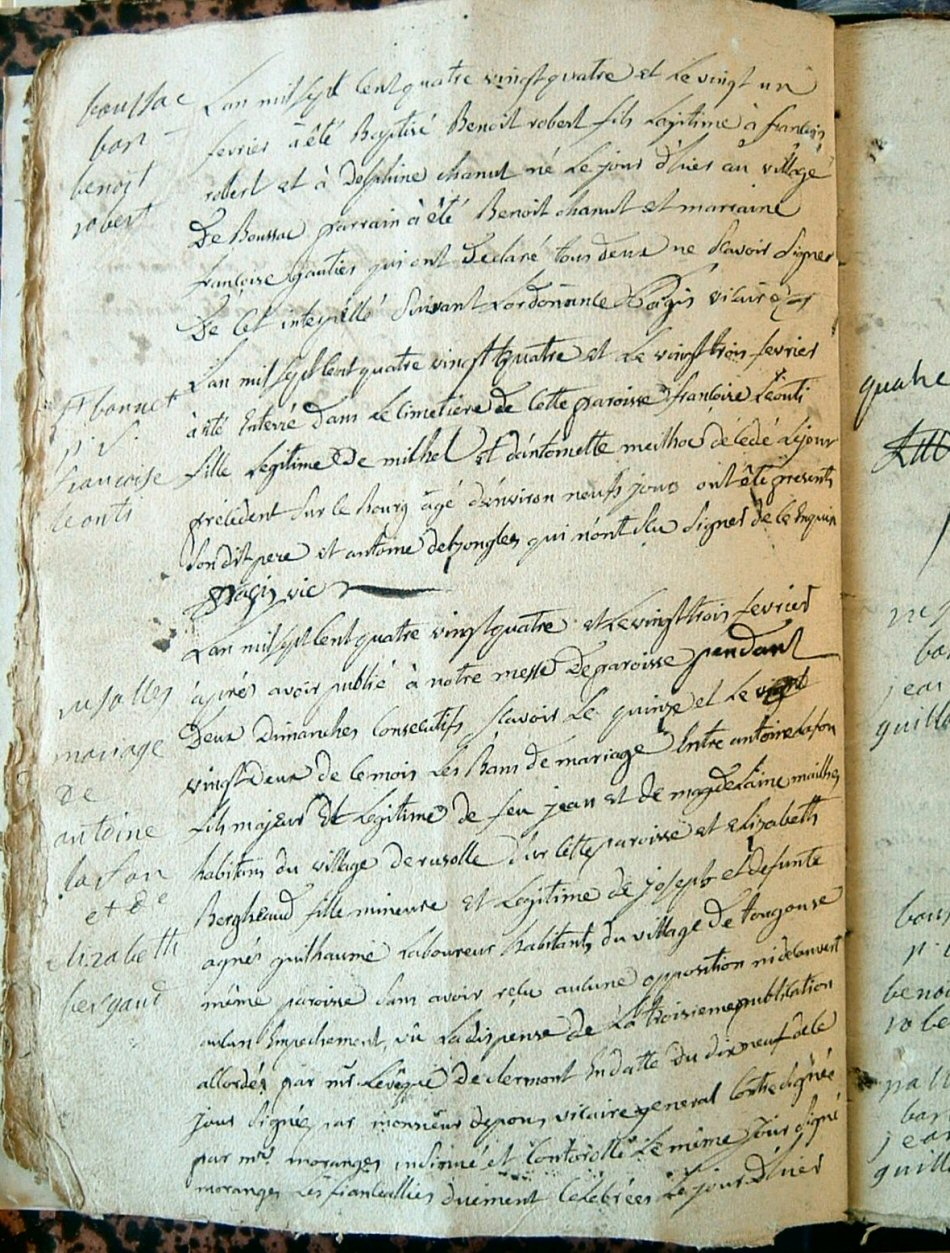 boussac
bap
benoit
robert
Lan mil sept cent quatre vingt quatre et le vingt un
fevrier à été Baptisé Benoit robert fils Legitime à francois
robert et à Delphine chanut né le jour d'hier au village
De Boussac parrain à été Benoit chanut et marraine
francoise gautier qui ont Declaré tous deux ne scavoir signer
De cet interpellé suivant Lordonnance vicaire
bonnet
francoise
leonti
Lan mil sept cent quatre vingt quatre et le vingt trois fevrier
à été Enterré dans le cimetiere de cette paroisse francoise Leonti
fille Legitime De michel et d'antoinette décédé le jour
précédent sur le bourg âgé d'environ neufs jours ont été presents
son dit pere et antoine qui n'ont sçu signer de ce Enquis
vic
rusolles
mariage
de
antoine
lafon
et de
elizabeth
bergaud
Lan mil sept cent quatre vingt quatre et le vingt trois fevrier
apres avoir publié à notre messe De paroisse pendant
Deux Dimanches consecutifs scavoir le quinze et le
vingt deux de ce mois les Bans de mariage Entre antoine lafon
fils majeur et legitime de feu jean et de magdelaine
habitans du village de rusolle sur cette paroisse et Elizabeth
Bergheaud fille mineure et Legitime de joseph et defunte
agnés guilhaume laboureur habitants du village de
même paroisse sans avoir reçu aucune opposition ni decouvert
aucun Empechement, vû La dispense de La troisieme publication
accordée par mr Levêque de clermont En datte du dix neuf de ce
jour signée par monsieur depons vicaire general contresignée
par mr moranges insinué et controllé le même jour signé
moranges Les fiancailles duement Célébrées Le jour D'hier
quatre
bap
jean
benoi
robe
bap
jean